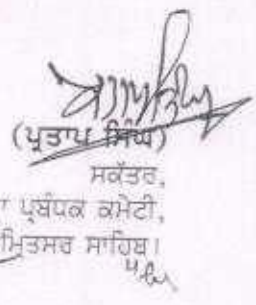 (ਪ੍ਰਤਾਪ ਸਿੰਘ)
ਸਕੱਤਰ,
ਪ੍ਰਬੰਧਕ ਕਮੇਟੀ,
ਮ੍ਰਿਤਸਰ ਸਾਹਿਬ।